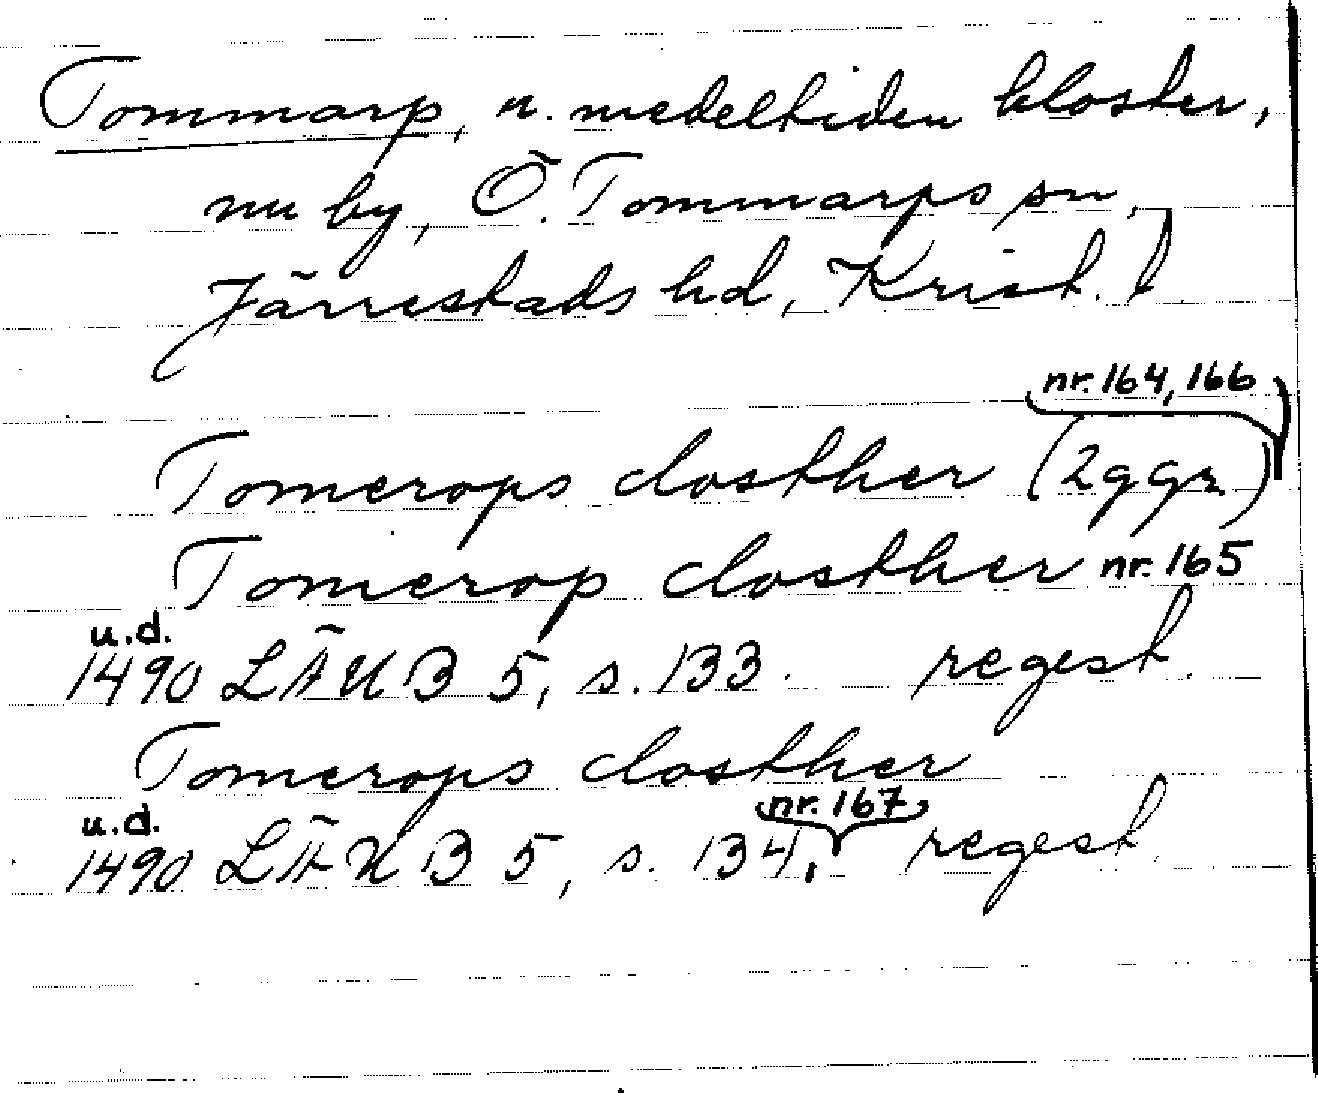 Tommarp, u. medeltiden kloster,
nu by, Ö. Tommarps sn,
Järrestads hd, Krist. l
nr. 164, 166
Tomerops closther (2 ggr)
Tomerop closther nr. 165
u.d.
1490 LÄUB 5, s. 133. regest.
Tomerops closther
nr. 167
u.d.
1490 LÄUB 5, s. 134, regest